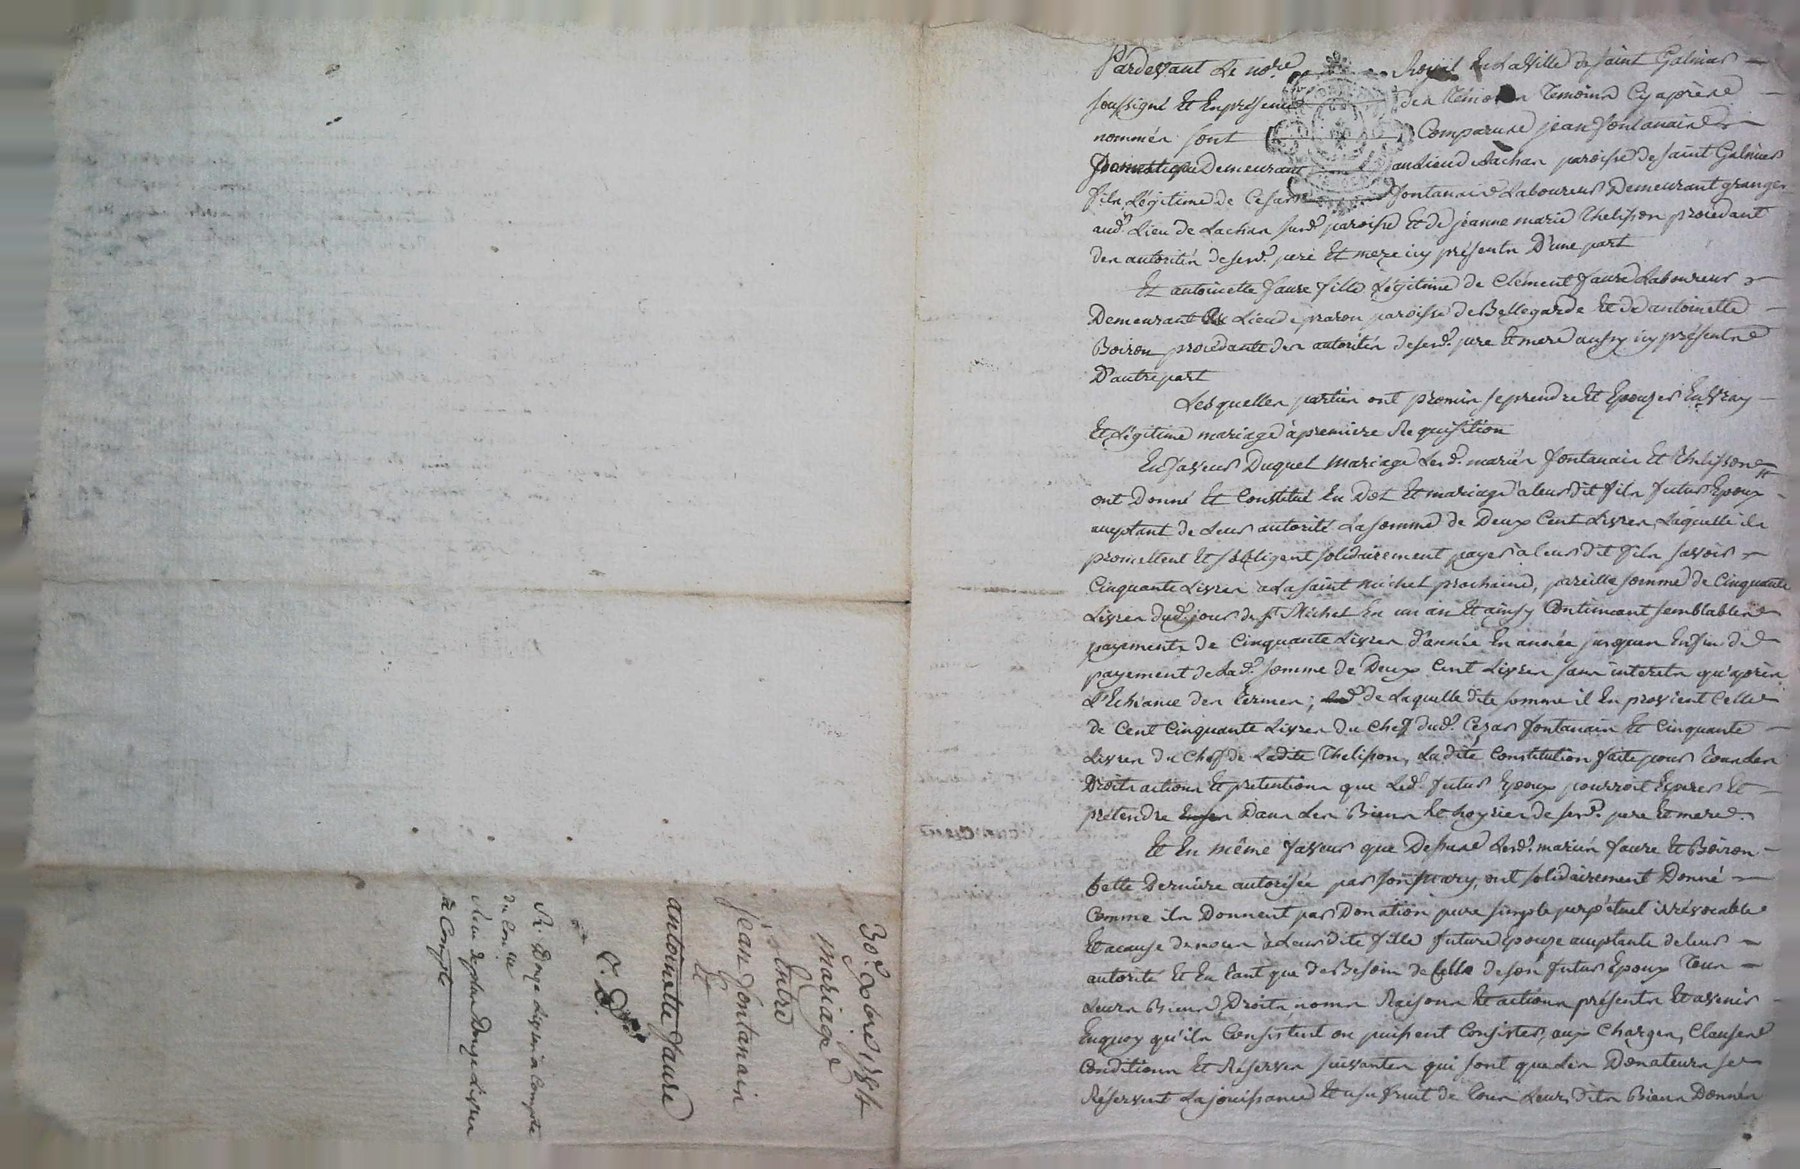 Pardevant Le no.re Royal En La Ville de Saint Galmier
soussigné Et En présence des témoins Cy après
nommés sont Comparus jean fontanain
Domestique Demeurant au Lieu de Lachan paroisse de saint Galmier
fils Légitime de Cesar fontanain Laboureur Demeurant granger
aud. Lieu de Lachan sus.d paroisse Et de jeanne marie Thelisson procédant
des autorités de ses d. pere Et mere icy présents D'une part
Et antoinette faure fille Légitime de Clément faure Laboureur
Demeurant Lieu de prason paroisse de Bellegarde Et de antoinette
Boiron procédante des autorités de ses d. pere Et mere aussy icy présents
D'autre part
Lesquelles parties ont promis se prendre Et Epouser En Vray
Et Légitime mariage à premiere Requisition
En faveur Duquel mariage Les d. mariés fontanain Et Thelisson
ont Donné Et Constitué En Dot Et mariage à leur dit fils futur Epoux
aceptant de Leur autorité La somme de Deux Cent Livres, Laquelle ils
promettent Et s'obligent solidairement payer à leur dit fils savoir
Cinquante Livres à La saint Michel prochaine, pareille somme de Cinquante
Livres dud. jour de s.t Michel En un an Et ainsy Continuant semblables
payements de Cinquante Livres d'année En année jusques En fin de
payement de La d. somme de Deux Cent Livres sans interets qu'après
L'Echéance des termes; de Laquelle dite somme il En provient Celle
de Cent Cinquante Livres du Chef dud. Cezar fontanain Et Cinquante
Livres du Chef de Ladite Thelisson, La dite Constitution faite pour tous les
Droits actions Et pretentions que Led. futur Epoux pourroit Esperer Et
prétendre Dans Les Biens Et hoyries de ses d. pere Et mere.
Et En même faveur que Dessus Les d. mariés faure Et Boiron
Cette Derniere autorisée par son mary, ont solidairement Donné
Comme ils Donnent par Donation pure simple perpétuel irrévocable
Et à cause de noces à Leur dite fille future épouze aceptante de leur
autorité Et En tant que de Besoin de Celle de son futur Epoux Tous
Leurs Biens, Droits, noms Raisons Et actions présents Et avenir
En quoy qu'ils Consistent ou puissent Consister, aux Charges, Clauses
Conditions Et Réserves suivantes qui sont que Les Donateurs se
Réservent La jouissance Et usufruit de tous Leurs dits Biens Donnés
30.e Xbre 1784
mariage
Entre
jean fontanain
Et
antoinette faure
R. Douze Livres à Compte
du Con.le
Reçu de plus Douze Livres
à Compte